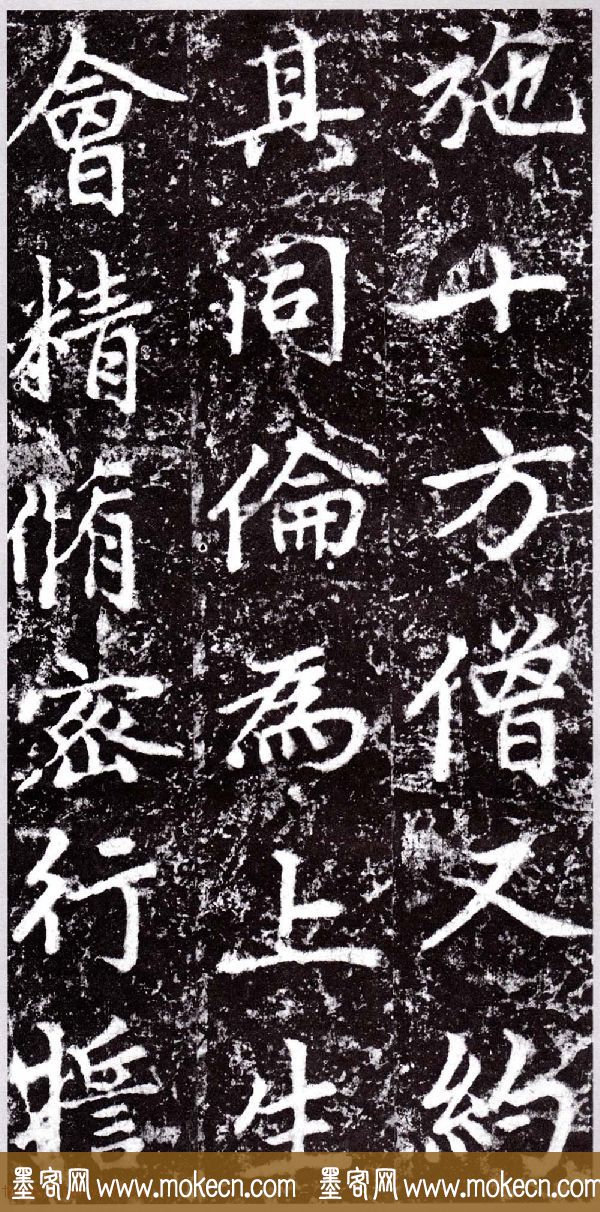 施十方僧又約
其同倫為上生
會精脩密行
墨客网 www.mokecn.com 墨客网 www.mokecn.com